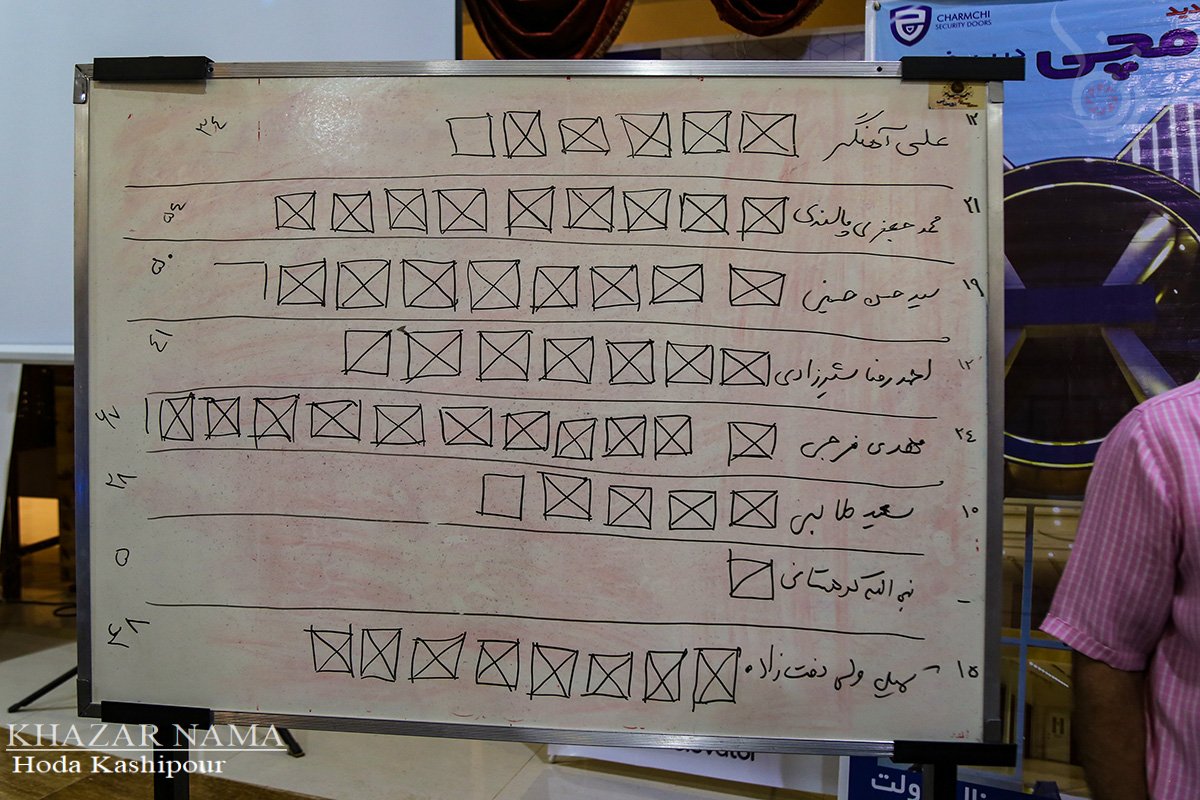 CHARMCHI
SECURITY DOORS
۱۲ علی آهنگر ۳۴
۲۱ محمد جعفری پالندی ۵۴
۱۹ سید حسن حسینی ۵۰
۱۲ احمدرضا شیرزادی ۴۱
۲۴ مهدی فرجی ۶۷
۱۰ سعید طالبی ۲۸
- کردستانی ۵
۱۵ سهیل ولی نفت زاده ۴۸
elevator
KHAZAR NAMA
Hoda Kashipour